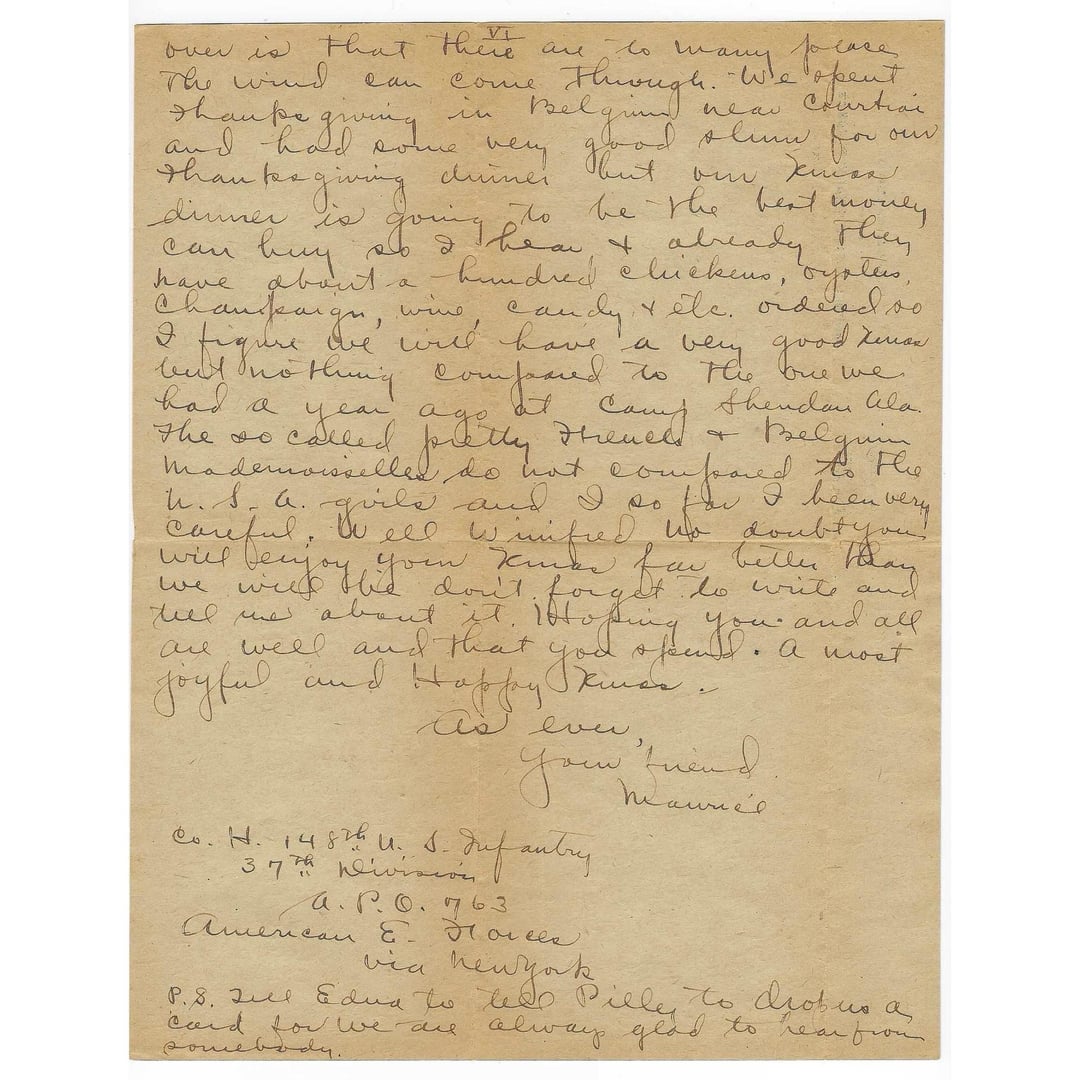 VI
over is that there are to many place
the wind can come through. We spent
Thanksgiving in Belgium near Courtrai
and had some very good slum for our
Thanksgiving dinner but our Xmas
dinner is going to be the best money
can buy so I hear & already they
have about a hundred chickens, oysters,
Champaign, wine, candy & etc. ordered so
I figure we will have a very good Xmas
but nothing compared to the one we
had a year ago at Camp Sheridan Ala.
The so called pretty French & Belgium
Mademoisselles do not compared to the
U. S. A. girls and I so far I been very
careful. Well Winifred no doubt you
will enjoy your Xmas far better than
we will the don't forget to write and
tell me about it. Hoping you and all
are well and that you spend. A most
joyful and Happy Xmas.
As ever,
Your friend
Maurice
Co. H. 148th U. S. Infantry
37th Division
A. P. O. 763
American E. Forces
via New York
P.S. Tell Edna to tell to drop us a
card for we are always glad to hear from
somebody.